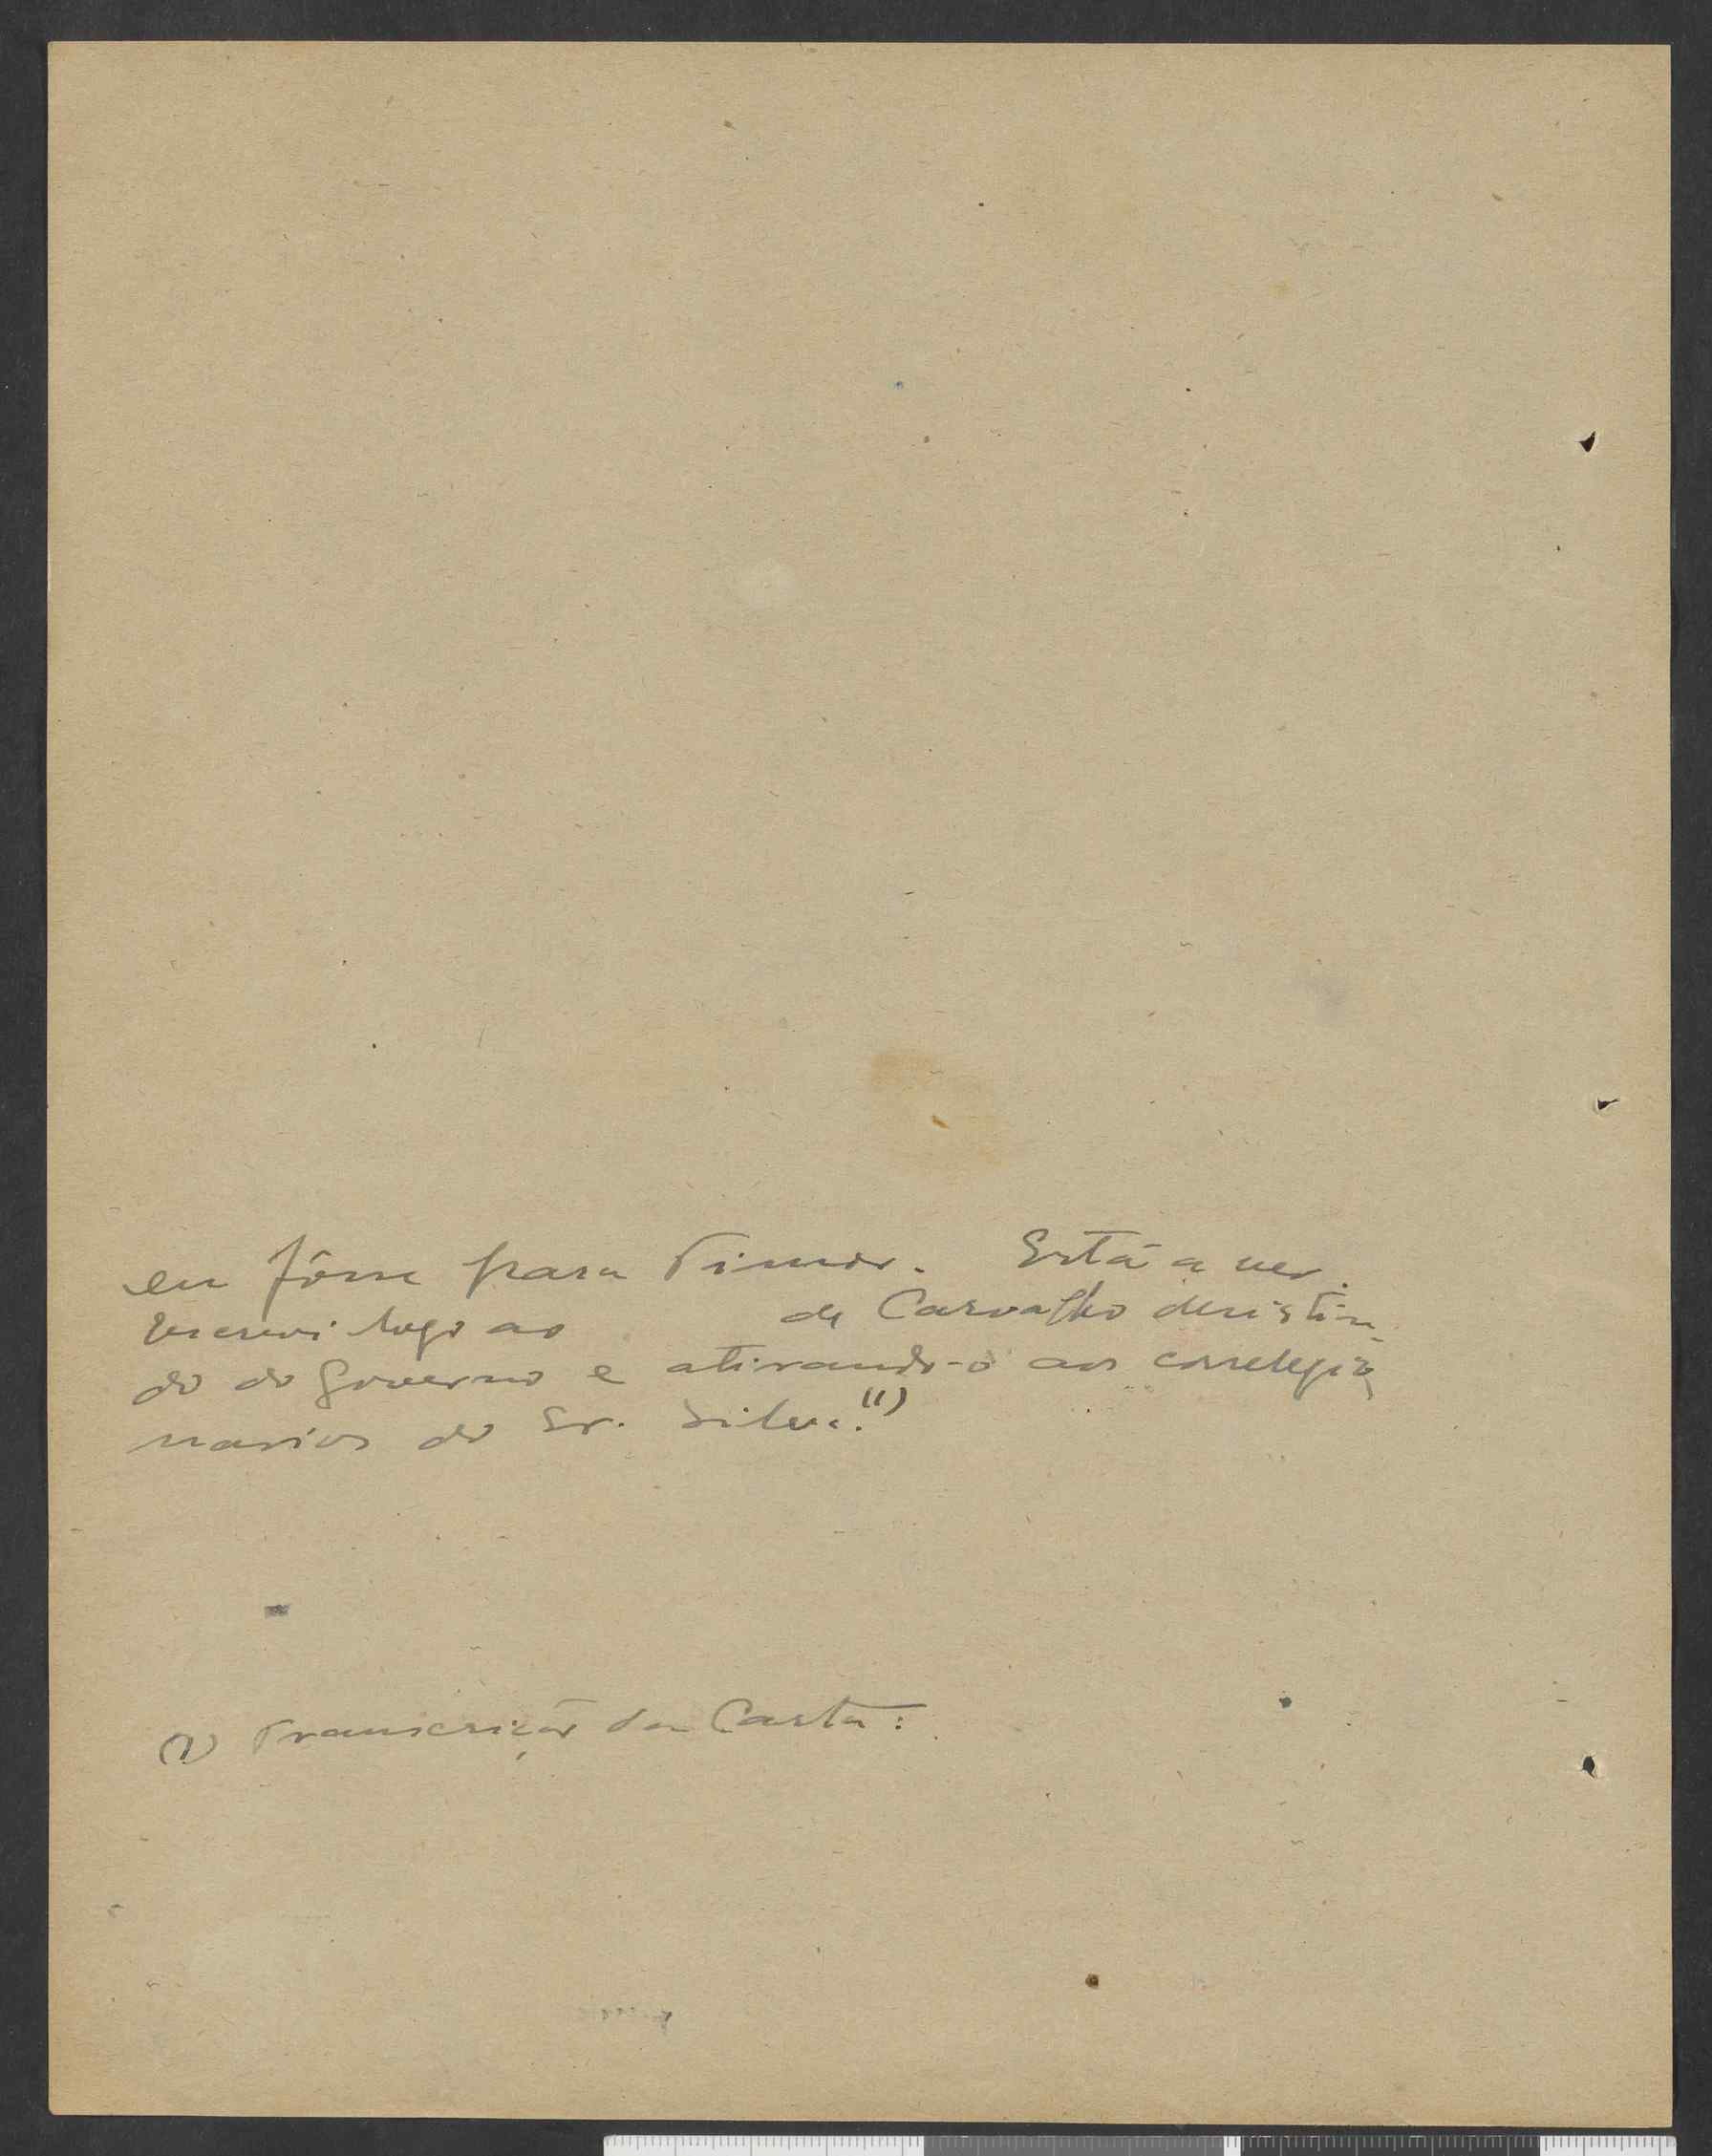 eu fôsse para Timor. Está a ver.
Escrevi logo ao de Carvalho desistin-
do do Governo e atirando-o aos correlegio
narios do Sr. Silva.(1)
(1) Transcrição da Carta: